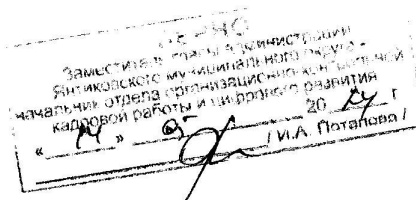 ВЕРНО
Заместитель главы администрации
Янтиковского муниципального округа -
начальник отдела организационно-контрольной
кадровой работы и цифрового развития
« 14 » 05 20 24 г
/ И.А. Потапова /